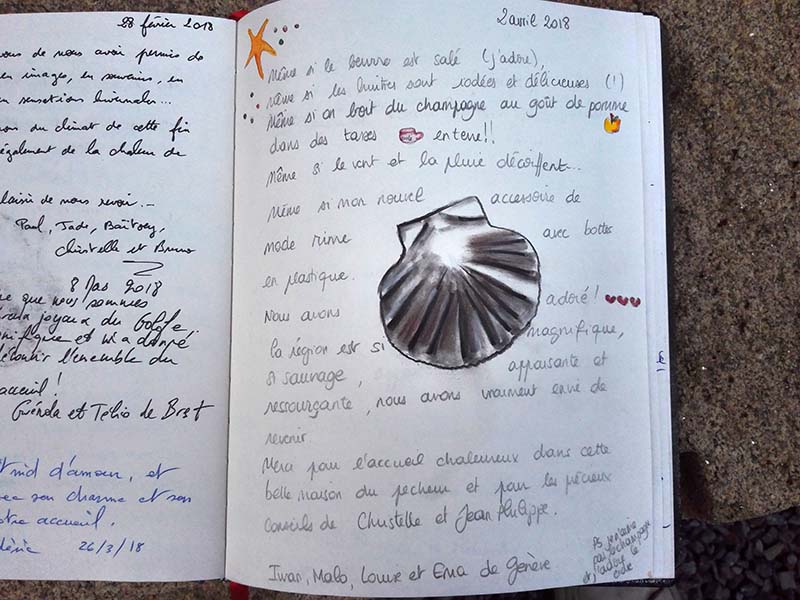 28 février 2018
ous de nous avoir permis de
en images, en souvenirs, en
en sensations hivernales...
du climat de cette fin
également de la chaleur de
plaisir de nous revoir...
Paul, Jade,
Christelle et Bruno
8 Mars 2018
que nous sommes
joyaux du Golfe,
et m'a donné
l'ensemble du
accueil !
Guénola et de
nid d'amour, et
son charme et son
otre accueil.
26/3/18
2 avril 2018
Même si le beurre est salé (j'adore),
même si les huîtres sont iodées et délicieuses (!)
Même si on boit du champagne au goût de pomme
dans des tasses en terre!!
Même si le vent et la pluie décoiffent...
Même si mon nouvel accessoire de
mode rime avec bottes
en plastique.
Nous avons adoré !
la région est si magnifique,
si sauvage, appaisante et
ressourçante, nous avons vraiment envie de
revenir
Merci pour l'accueil chaleureux dans cette
belle maison du pecheur et pour les précieux
conseils de Christelle et Jean Philippe.
Iwan, Malo, Louise et Ema de Genève
PS
champagne
j'adore le
cidre